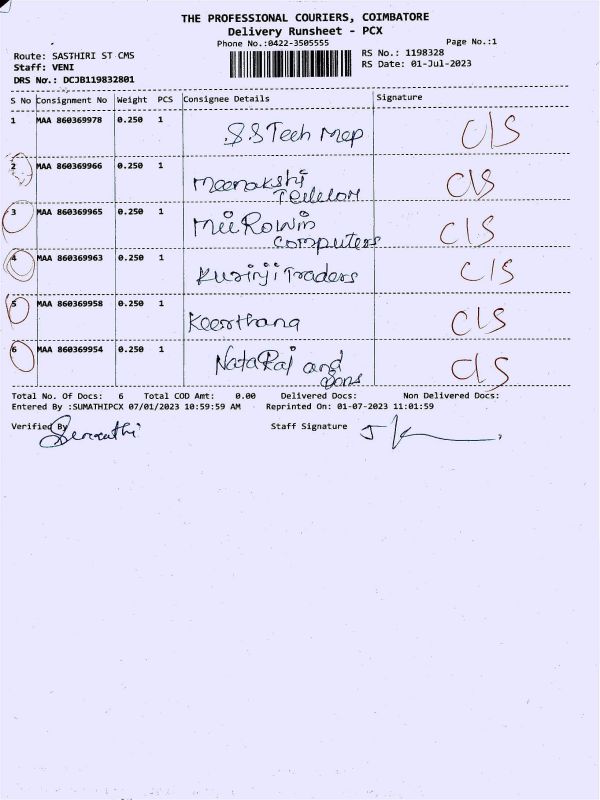 THE PROFESSIONAL COURIERS, COIMBATORE
Delivery Runsheet - PCX
Phone No.:0422-3505555 Page No.:1
Route: SASTHIRI ST CMS RS No.: 1198328
Staff: VENI RS Date: 01-Jul-2023
DRS No.: DCJB119832801
S No Consignment No Weight PCS Consignee Details Signature
1 MAA 860369978 0.250 1 S.S Tech Mep C/S
2 MAA 860369966 0.250 1 Meenakshi C/S
3 MAA 860369965 0.250 1 C/S
computers
4 MAA 860369963 0.250 1 Kurinji Traders C/S
5 MAA 860369958 0.250 1 Keerthana C/S
6 MAA 860369954 0.250 1 NataRaj and C/S
Sons
Total No. Of Docs: 6 Total COD Amt: 0.00 Delivered Docs: Non Delivered Docs:
Entered By :SUMATHIPCX 07/01/2023 10:59:59 AM Reprinted On: 01-07-2023 11:01:59
Verified By Staff Signature